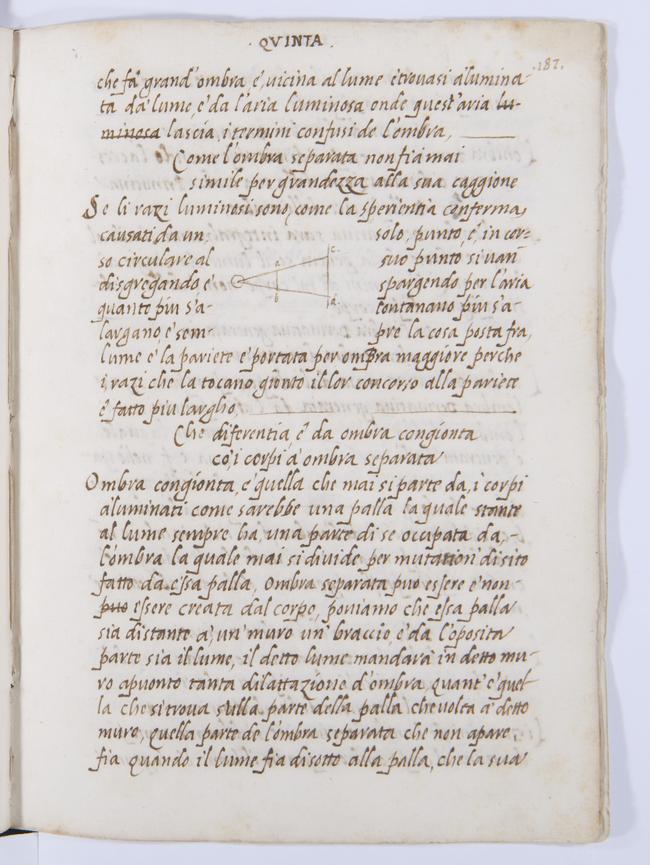 . QVINTA .
.187.
che fa grand' ombra, é, uicina al lume é trouasi alumina-
ta da lume, é da l'aria luminosa, onde quest' aria lu-
minosa lascia, i termini confusi de l'ombra,
Come l'ombra separata non fia mai
simile per grandezza alla sua caggione
Se li razi luminosi sono, come la sperientia conferma,
causati da un solo, punto, é, in cor-
so circulare al suo punto si uan
disgregando, é spargendo per l'aria
quanto piu s'a- lontanano piu s'a-
largano, é sem- pre la cosa posta fra,
a c
b d
lume é la pariete é portata per ombra maggiore perche
i, razi che la tocano, gionto il lor concorso alla pariete
é fatto piu largho,
Che diferentia, é da ombra congionta
co, i corpi á ombra separata
Ombra congionta, é quella che mai si parte da, i corpi
aluminati come sarebbe una palla la quale stante
al lume sempre ha, una parte di se ocupata da,-
l'ombra la quale mai si diuide per mutation' di sito
fatto da essa palla, Ombra separata puo essere é non
puo essere creata dal corpo, poniamo che essa palla
sia distante á un' muro un' braccio, é da l'oposita
parte sia il lume, il detto lume mandará in detto mu-
ro apuonto tanta dilattazione d'ombra, quant' é quel-
la che si troua sulla parte della palla che uolta á detto
muro, quella parte de l'ombra separata che non apare,
fia quando il lume fia disotto alla palla, che la sua